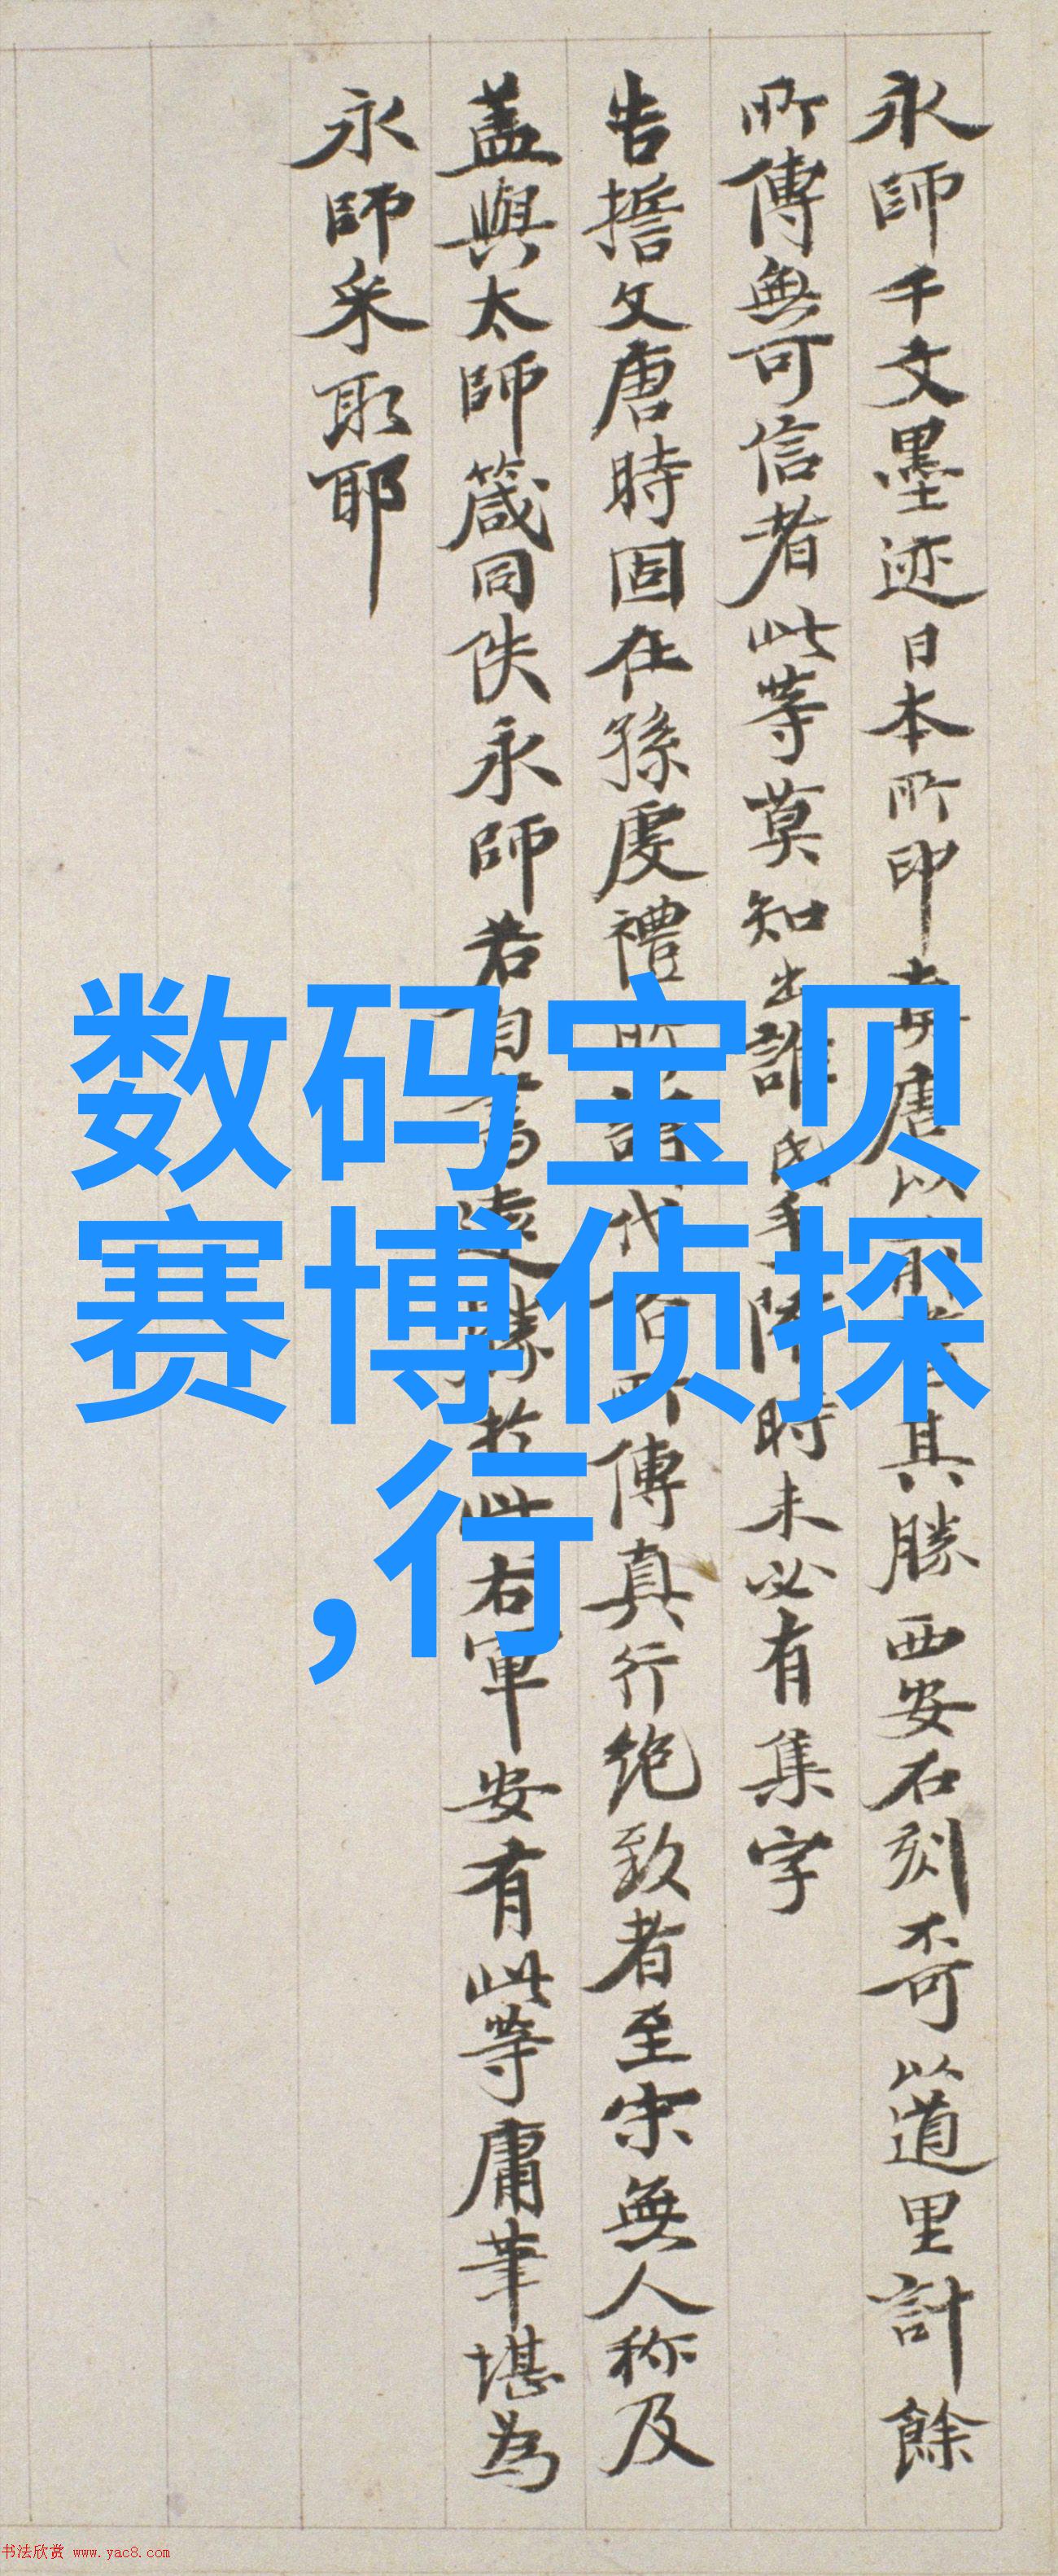 永師千文墨迹日本所印奪唐以前
其勝西安石刻不可以道里計餘
所傳無可信者此等莫知出誰氏手隋時未必有集字
告擔文唐時固在孫虔禮
代
所傳真行絶致者至宋無人称及
盖與太師箴同佚永師若自書遠勝於此右軍安有此等庸筆堪為
永師采取耶
数码宝贝
赛博侦探
,行
书法欣赏 www.yac8.com